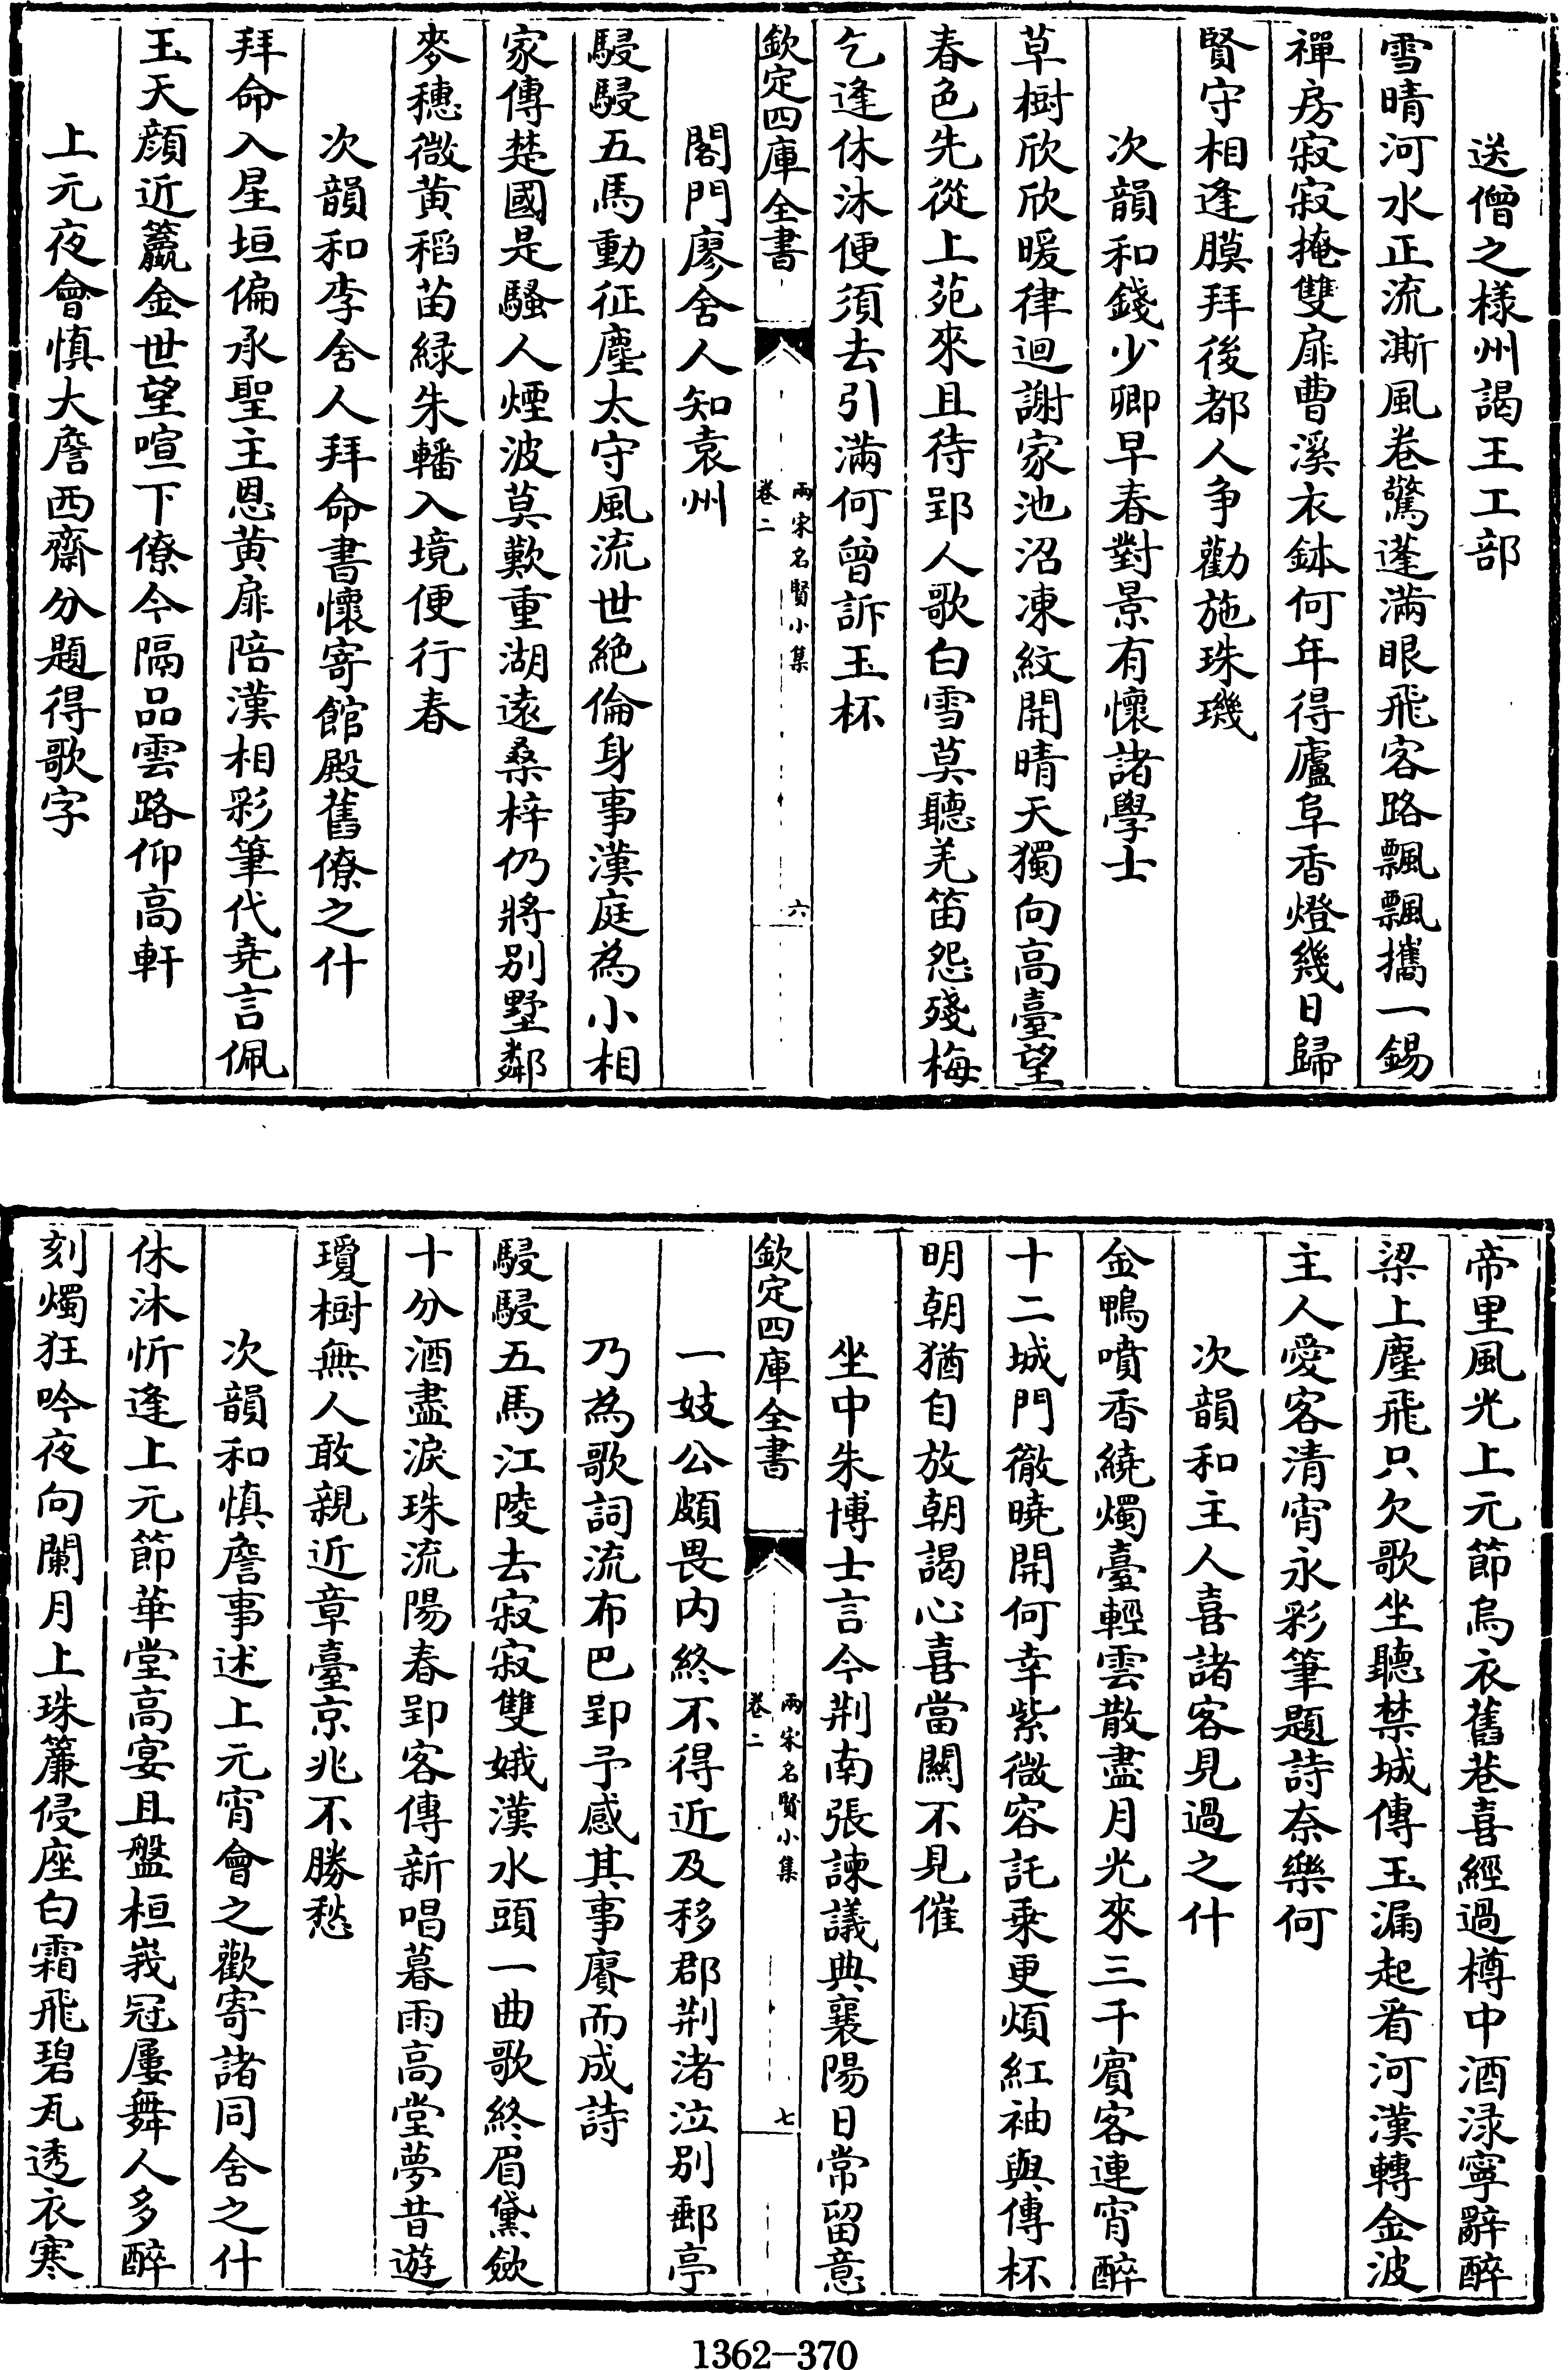 送僧之様州謁王工部
雪晴河水正流澌風卷驚蓬滿眼飛客路飄飄攜一錫
禪房寂寂掩雙扉曹溪衣鉢何年得廬阜香燈幾日歸
賢守相逢膜拜後都人争勸施珠璣
次韻和錢少卿早春對景有懷諸學士
草樹欣欣暖律迴謝家池沼凍紋開晴天獨向高臺望
春色先從上苑來且待郢人歌白雪莫聽羌笛怨殘梅
乞逢休沐便須去引滿何曾訴玉杯
欽定四庫全書
兩宋名賢小集
卷二
六
閣門廖舍人知袁州
駸駸五馬動征塵太守風流世絶倫身事漢庭為小相
家傳楚國是騷人煙波莫歎重湖遠桑梓仍將别墅鄰
麥穗微黄稻苗緑朱轓入境便行春
次韻和李舍人拜命書懷寄館殿舊僚之什
拜命入星垣偏承聖主恩黄扉陪漢相彩筆代堯言佩
玉天顔近籯金世望喧下僚今隔品雲路仰高軒
上元夜會慎大詹西齋分題得歌字
帝里風光上元節烏衣舊巷喜經過樽中酒渌寧辭醉
梁上塵飛只欠歌坐聽禁城傳玉漏起看河漢轉金波
主人愛客清宵永彩筆題詩奈樂何
次韻和主人喜諸客見過之什
金鴨噴香繞燭臺輕雲散盡月光來三千賓客連宵醉
十二城門徹曉開何幸紫微容託乗更煩紅袖與傳杯
明朝猶自放朝謁心喜當關不見催
坐中朱博士言今荆南張諫議典襄陽日常留意
欽定四庫全書
兩宋名賢小集
卷二
七
一妓公頗畏内終不得近及移郡荆渚泣别郵亭
乃為歌詞流布巴郢予感其事賡而成詩
駸駸五馬江陵去寂寂雙娥漢水頭一曲歌終眉黛歛
十分酒盡淚珠流陽春郢客傳新唱暮雨高堂夢昔遊
瓊樹無人敢親近章臺京兆不勝愁
次韻和慎詹事述上元宵會之歡寄諸同舍之什
休沐忻逢上元節華堂高宴且盤桓峩冠屢舞人多醉
刻燭狂吟夜向闌月上珠簾侵座白霜飛碧瓦透衣寒
1362-370